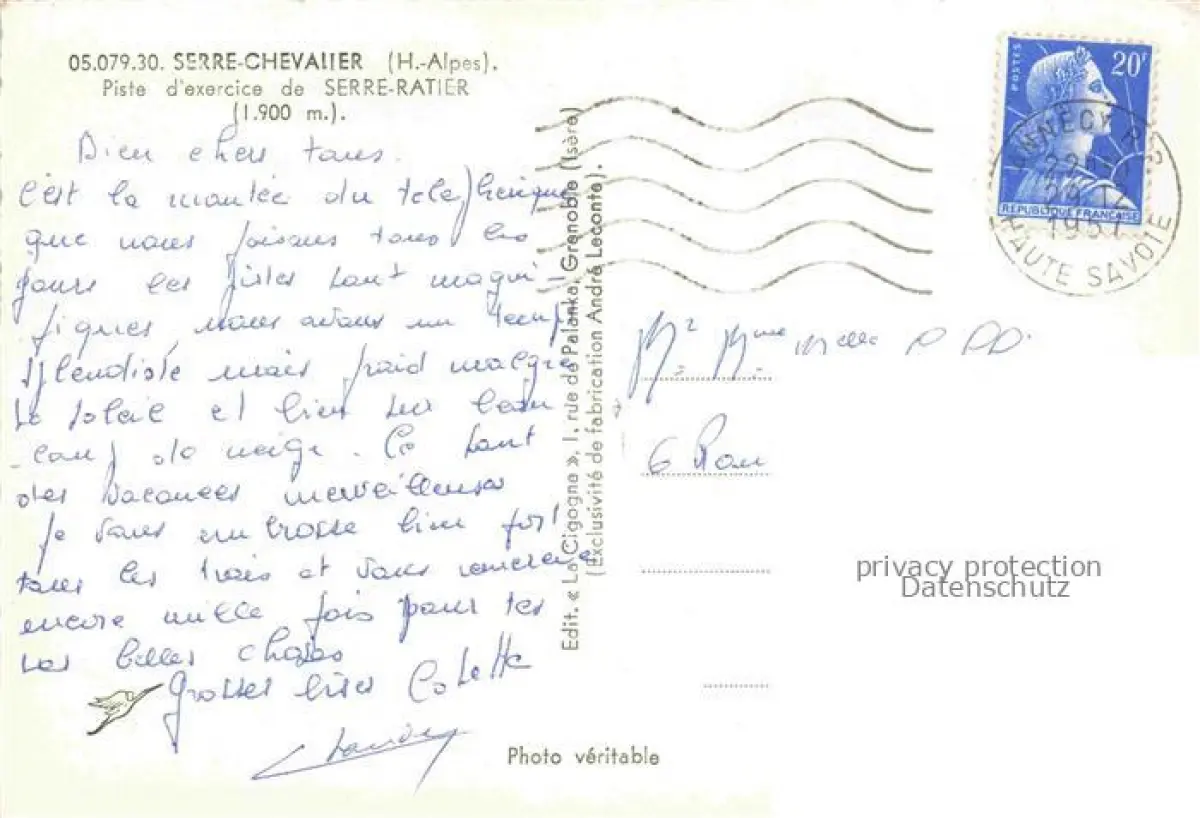 05.079.30. SERRE-CHEVALIER (H.-Alpes).
Piste d'exercice de SERRE-RATIER
(1.900 m.).
Bien chers tous.
C'est la montée du telepherique
que nous faisons tous les
jours les pistes sont magni-
fiques, nous avons un temps
splendide mais froid malgré
le soleil et bien sur beau
coup de neige. Ce sont
des vacances merveilleuses
Je vous embrasse bien fort
tous les trois et vous remercie
encore mille fois pour tes
les belles choses
Grosses bises Colette
Edit. « La Cigogne », 1, rue de Palanka, Grenoble (Isère)
(Exclusivité de fabrication André Leconte).
POSTES
20F
REPUBLIQUE FRANÇAISE
ANNECY R.P.
22H
29-12
1957
HAUTE SAVOIE
Mr Mme Melle
6 
privacy protection
Datenschutz
Photo véritable